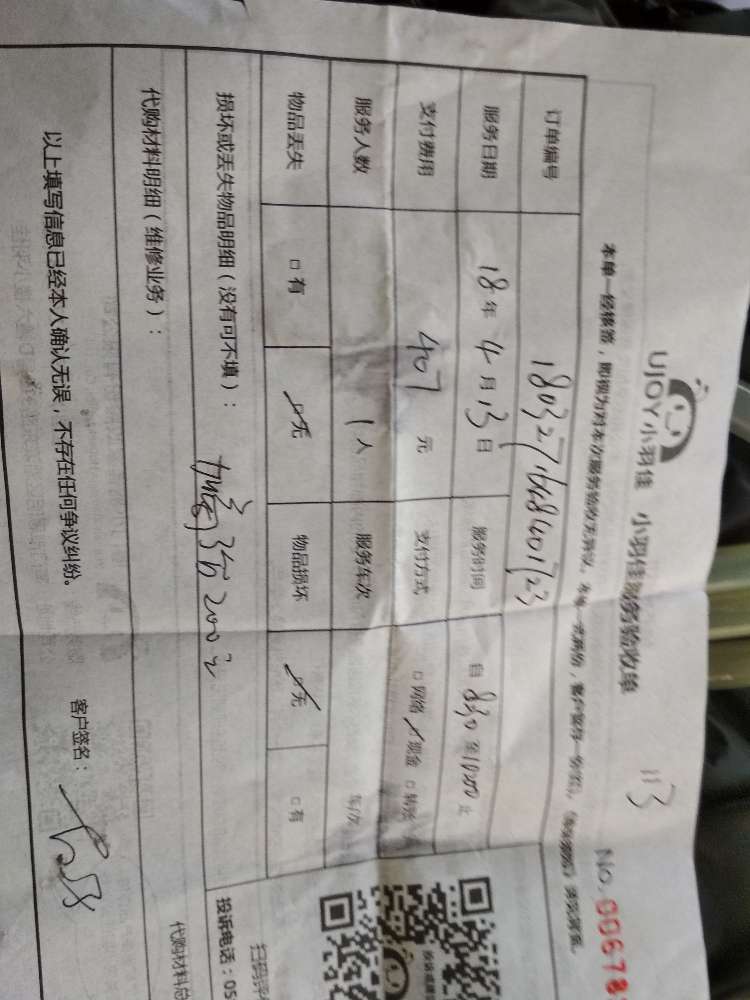 UJOY小羽佳 小羽佳服务验收单
113
No.00678
本单一经核签，即视为对本次服务验收无异议。
订单编号
服务日期 18年4月13日 服务时间 自8:30至10:00止
支付费用 407元 支付方式 □网络 ☑现金 □转账
服务人数 1人 服务车次 车/次
物品丢失 □有 ☑无 物品损坏 ☑无 □有
损坏或丢失物品明细（没有可不填）：
200元
代购材料明细（维修业务）：
代购材料总
以上填写信息已经本人确认无误，不存在任何争议纠纷。
客户签名：
扫码评
投诉电话：05